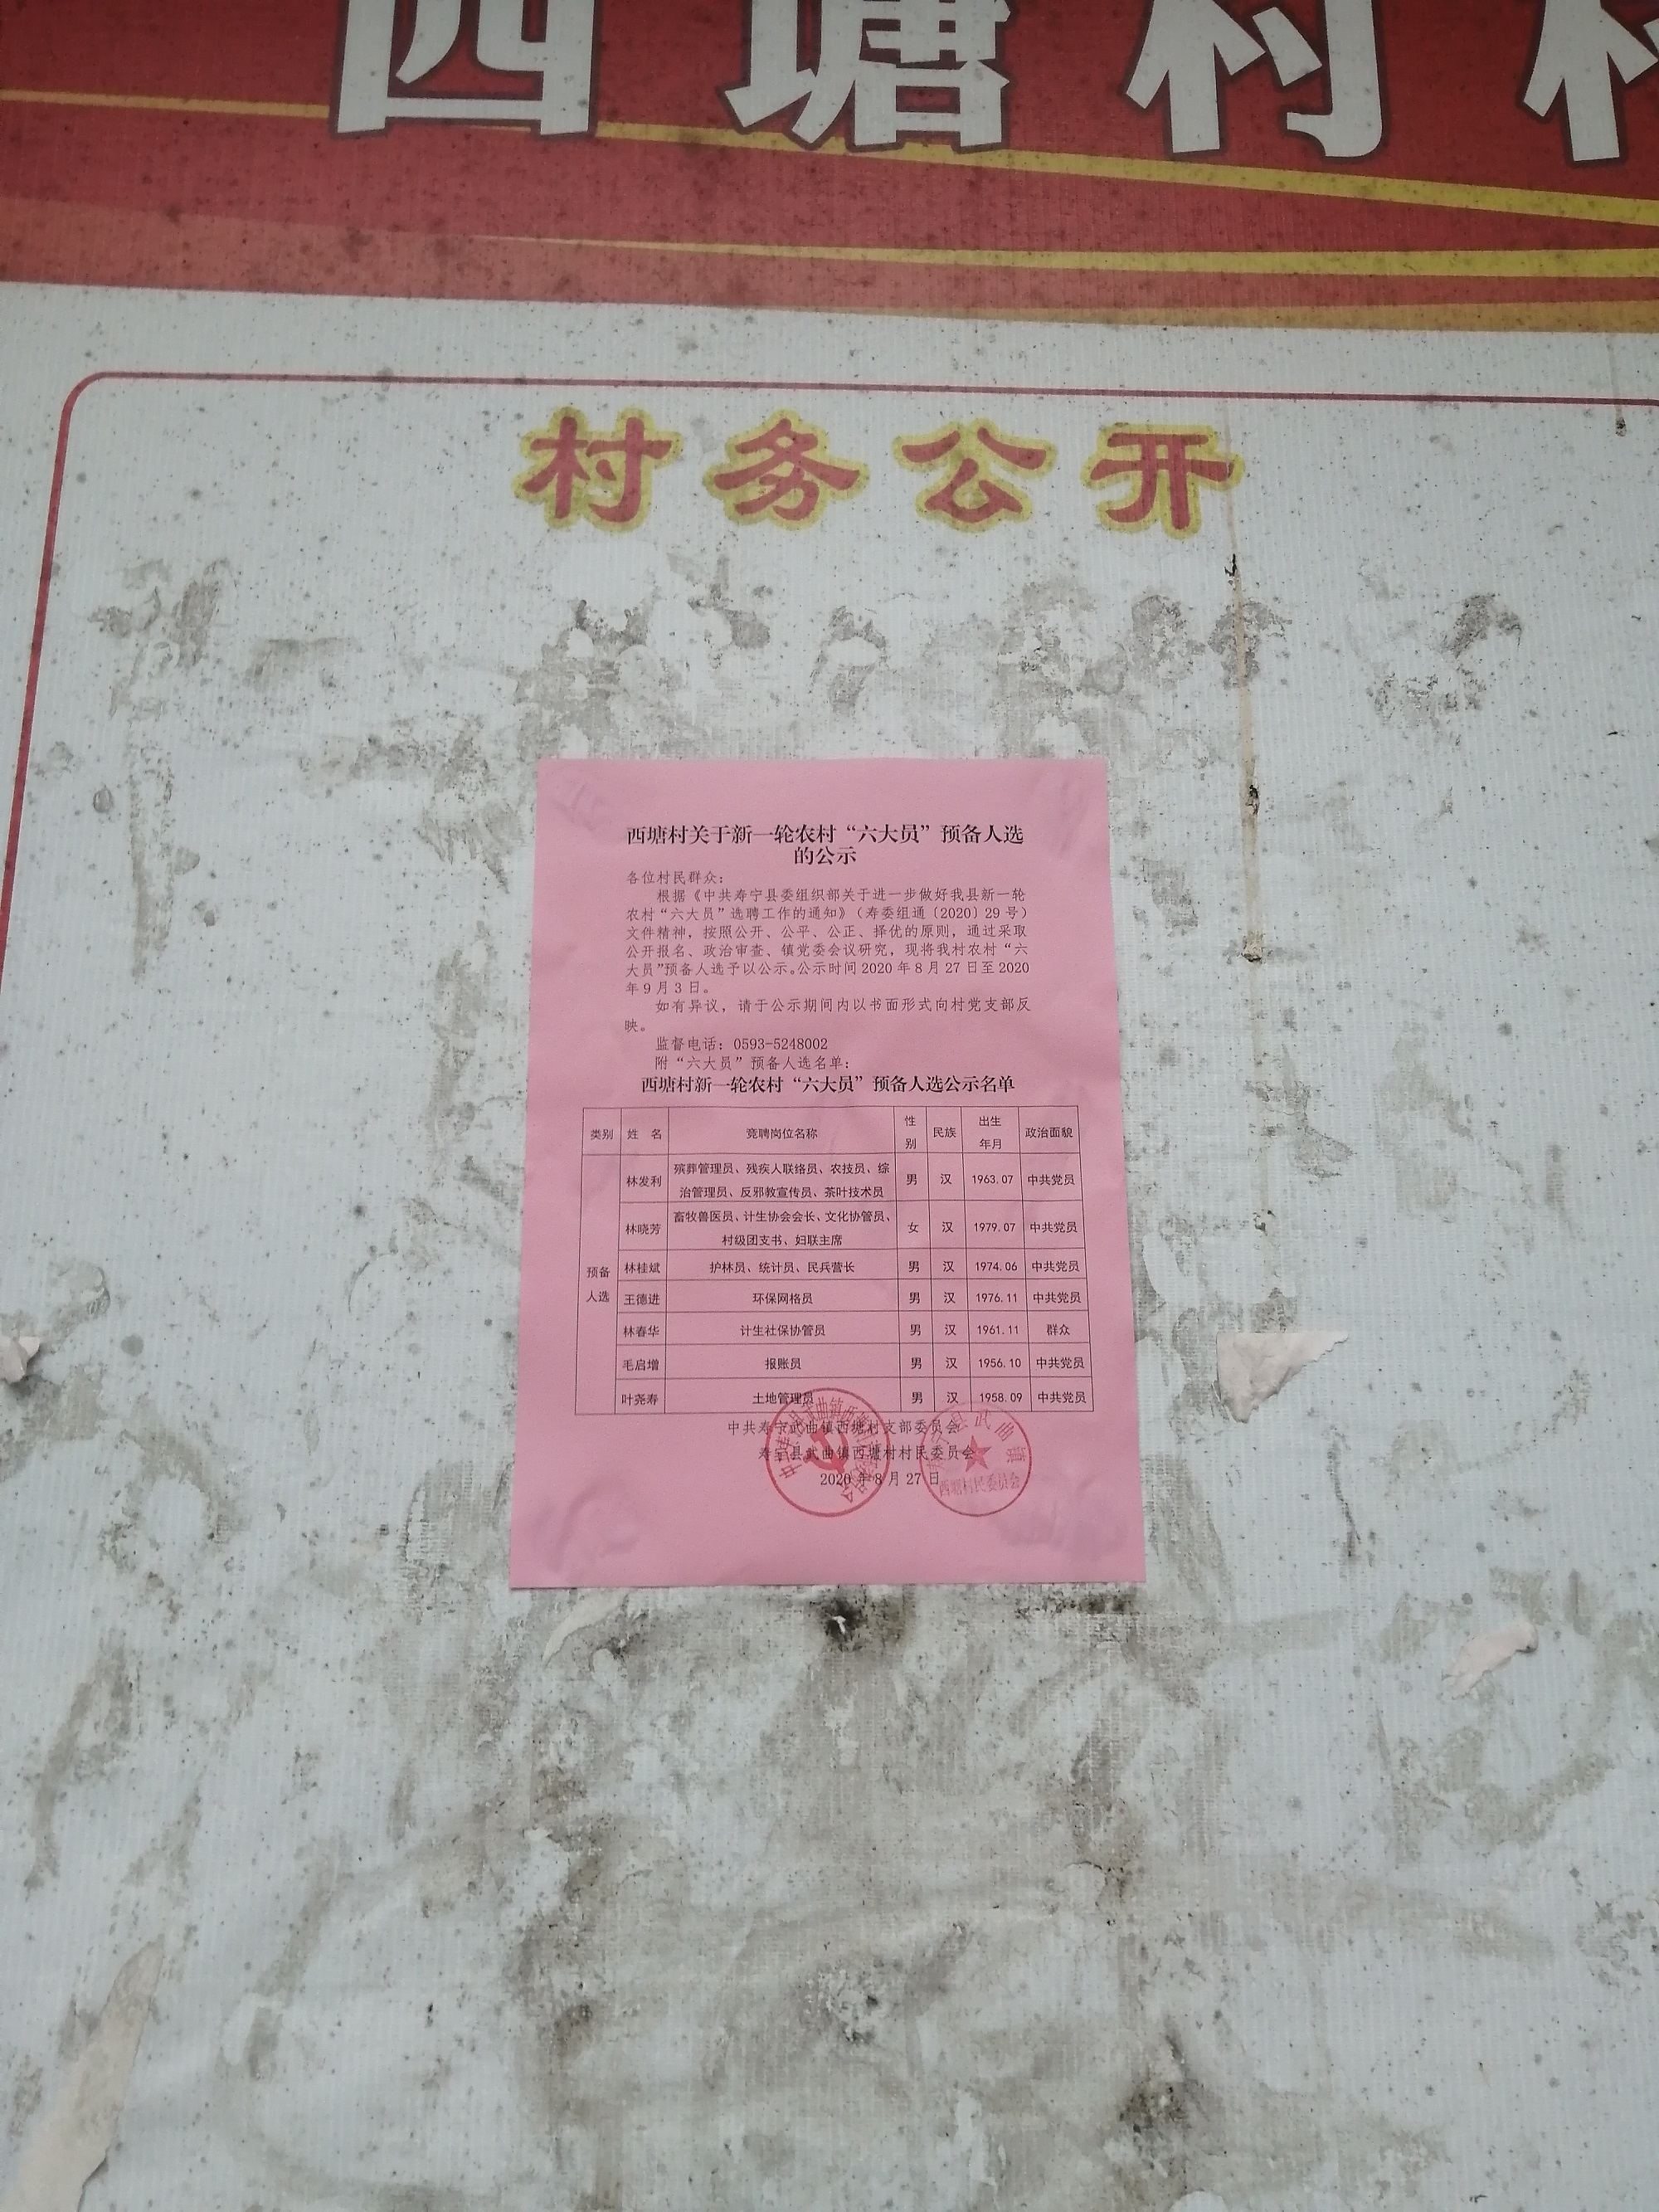 西塘村
村务公开
西塘村关于新一轮农村“六大员”预备人选
的公示
各位村民群众：
根据《中共寿宁县委组织部关于进一步做好我县新一轮
农村“六大员”选聘工作的通知》（寿委组通〔2020〕29号）
文件精神，按照公开、公平、公正、择优的原则，通过采取
公开报名、政治审查、镇党委会议研究，现将我村农村“六
大员”预备人选予以公示。公示时间2020年8月27日至2020
年9月3日。
如有异议，请于公示期间内以书面形式向村党支部反
映。
监督电话：0593-5248002
附“六大员”预备人选名单：
西塘村新一轮农村“六大员”预备人选公示名单
类别 姓 名 竞聘岗位名称 性别 民族 出生年月 政治面貌
预备人选
林发利 殡葬管理员、残疾人联络员、农技员、综治管理员、反邪教宣传员、茶叶技术员 男 汉 1963.07 中共党员
林晓芳 畜牧兽医员、计生协会会长、文化协管员、村级团支书、妇联主席 女 汉 1979.07 中共党员
林桂斌 护林员、统计员、民兵营长 男 汉 1974.06 中共党员
王德进 环保网格员 男 汉 1976.11 中共党员
林春华 计生社保协管员 男 汉 1961.11 群众
毛启增 报账员 男 汉 1956.10 中共党员
叶尧寿 土地管理员 男 汉 1958.09 中共党员
中共寿宁武曲镇西塘村支部委员会
寿宁县武曲镇西塘村村民委员会
2020年8月27日
西塘村民委员会